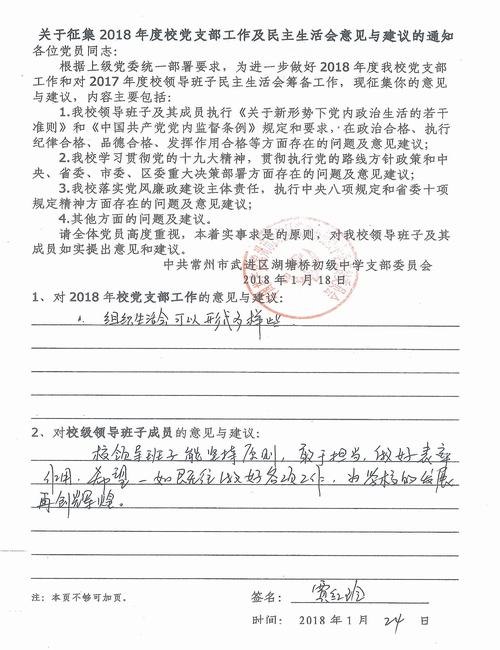 关于征集 2018 年度校党支部工作及民主生活会意见与建议的通知
各位党员同志：
根据上级党委统一部署要求，为进一步做好 2018 年度我校党支部
工作和对 2017 年度校领导班子民主生活会筹备工作，现征集你的意见
与建议，内容主要包括：
1.我校领导班子及其成员执行《关于新形势下党内政治生活的若干
准则》和《中国共产党党内监督条例》规定和要求，在政治合格、执行
纪律合格、品德合格、发挥作用合格等方面存在的问题及意见建议；
2.我校学习贯彻党的十九大精神，贯彻执行党的路线方针政策和中
央、省委、市委、区委重大决策部署方面存在的问题及意见建议；
3.我校落实党风廉政建设主体责任，执行中央八项规定和省委十项
规定精神方面存在的问题及意见建议；
4.其他方面的问题及建议。
请全体党员高度重视，本着实事求是的原则，对我校领导班子及其
成员如实提出意见和建议。
中共常州市武进区湖塘桥初级中学支部委员会
2018 年 1 月 18 日
1、对 2018 年校党支部工作的意见与建议：
1. 组织生活会可以形式多样些
2、对校级领导班子成员的意见与建议：
校领导班子能坚持原则，敢于担当，做好表率
作用，希望一如既往做好各项工作，为学校的发展
再创辉煌。
注：本页不够可加页。
签名：
时间： 2018 年 1 月 24 日